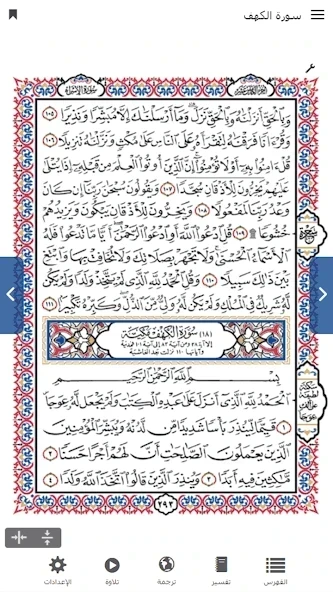 سورة الكهف
سُورَةُ الإِسْرَاءِ
وَبِالْحَقِّ أَنزَلْنَاهُ وَبِالْحَقِّ نَزَلَ وَمَا أَرْسَلْنَاكَ إِلَّا مُبَشِّرًا وَنَذِيرًا ١٠٥
وَقُرْءَانًا فَرَقْنَاهُ لِتَقْرَأَهُ عَلَى النَّاسِ عَلَىٰ مُكْثٍ وَنَزَّلْنَاهُ تَنزِيلًا ١٠٦
قُلْ ءَامِنُوا بِهِ أَوْ لَا تُؤْمِنُوا إِنَّ الَّذِينَ أُوتُوا الْعِلْمَ مِن قَبْلِهِ إِذَا يُتْلَىٰ
عَلَيْهِمْ يَخِرُّونَ لِلْأَذْقَانِ سُجَّدًا ١٠٧ وَيَقُولُونَ سُبْحَٰنَ رَبِّنَا إِن كَانَ
وَعْدُ رَبِّنَا لَمَفْعُولًا ١٠٨ وَيَخِرُّونَ لِلْأَذْقَانِ يَبْكُونَ وَيَزِيدُهُمْ
خُشُوعًا ١٠٩ قُلِ ادْعُوا اللَّهَ أَوِ ادْعُوا الرَّحْمَٰنَ أَيًّا مَا تَدْعُوا فَلَهُ
الْأَسْمَاءُ الْحُسْنَىٰ وَلَا تَجْهَرْ بِصَلَاتِكَ وَلَا تُخَافِتْ بِهَا وَابْتَغِ
بَيْنَ ذَٰلِكَ سَبِيلًا ١١٠ وَقُلِ الْحَمْدُ لِلَّهِ الَّذِي لَمْ يَتَّخِذْ وَلَدًا وَلَمْ يَكُن
لَّهُ شَرِيكٌ فِي الْمُلْكِ وَلَمْ يَكُن لَّهُ وَلِيٌّ مِّنَ الذُّلِّ وَكَبِّرْهُ تَكْبِيرًا ١١١
(١٨) سُورَةُ الْكَهْفِ مَكِّيَّة
إلا آية ٣٨ ومن آية ٨٣ إلى آية ١٠١ فمدنية
وآياتها ١١٠ نزلت بعد الغاشية
بِسْمِ اللَّهِ الرَّحْمَٰنِ الرَّحِيمِ
الْحَمْدُ لِلَّهِ الَّذِي أَنزَلَ عَلَىٰ عَبْدِهِ الْكِتَٰبَ وَلَمْ يَجْعَل لَّهُ عِوَجًا
١ قَيِّمًا لِّيُنذِرَ بَأْسًا شَدِيدًا مِّن لَّدُنْهُ وَيُبَشِّرَ الْمُؤْمِنِينَ
الَّذِينَ يَعْمَلُونَ الصَّٰلِحَٰتِ أَنَّ لَهُمْ أَجْرًا حَسَنًا ٢
مَّٰكِثِينَ فِيهِ أَبَدًا ٣ وَيُنذِرَ الَّذِينَ قَالُوا اتَّخَذَ اللَّهُ وَلَدًا ٤
٢٩٣
الفهرس
تفسير
ترجمة
تلاوة
الإعدادات